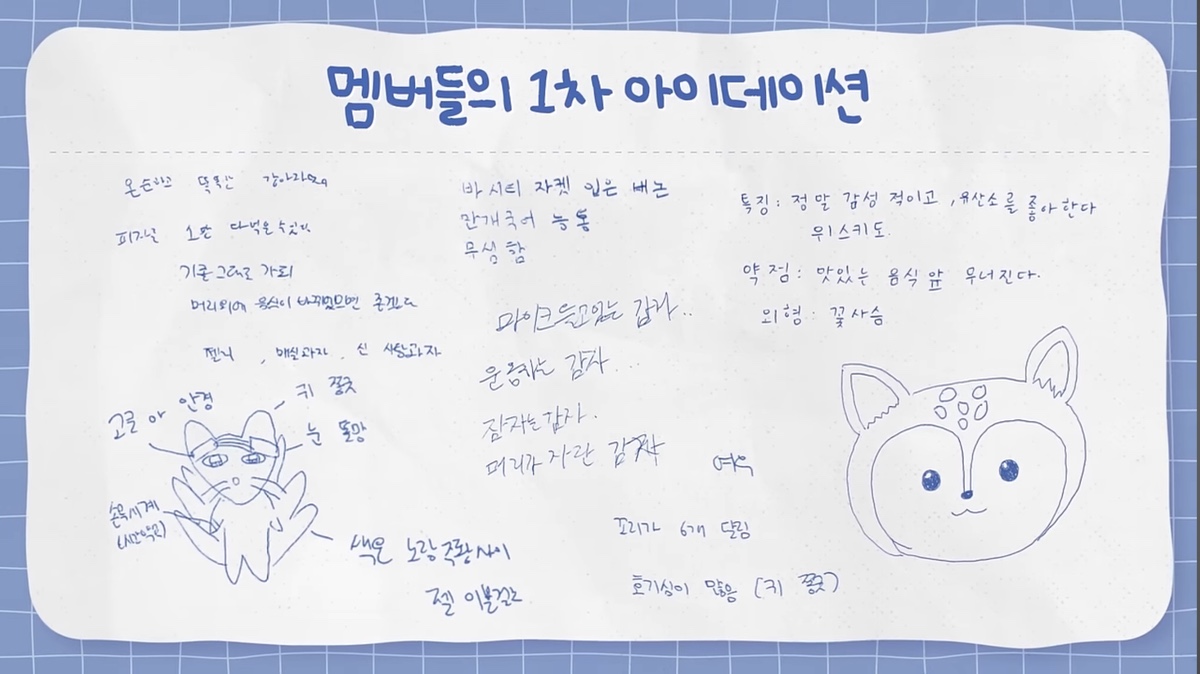 멤버들의 1차 아이데이션
온순하고 똑똑한 강아지
피자를 1판 다먹을 수 있다
기준 그대로 가죠
머리 위에 음식이 바뀌었으면 좋겠다
젤리, 매실과자, 신 사탕과자
고글 아 안경
귀 쫑긋
눈 똘망
손목시계
(시간약속)
색은 노랑 주황 사이
젤 이쁠걸로
바시티 자켓 입은 버논
만개국어 능통
무심함
마이크 들고있는 감자..
운동하는 감자...
잠자는 감자.
머리가 자란 감자
여우
꼬리가 6개 달림
호기심이 많음 (귀 쫑긋)
특징: 정말 감성적이고, 유산소를 좋아한다
위스키도.
약점: 맛있는 음식 앞 무너진다.
외형: 꽃사슴